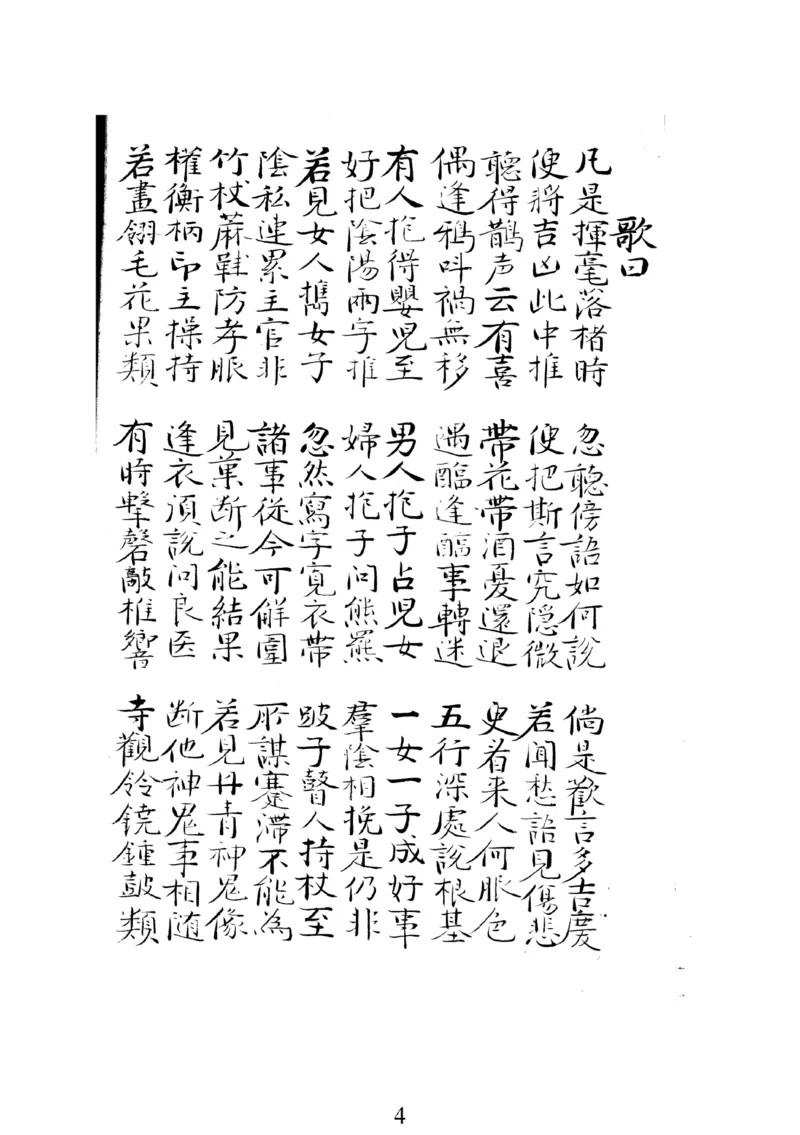 歌曰
凡是揮毫落楮時 忽聽傍語如何說 倘是歡言多吉慶
便將吉凶此中推 便把斯言究隱微 若聞愁語見傷悲
聽得鵲声云有喜 帶花帶酒憂還退 更看来人何服色
偶逢鴉叫禍無移 遇醢逢醢事轉迷 五行深處說根基
有人抱得嬰児至 男人抱子占児女 一女一子成好事
好把陰陽兩字推 婦人抱子問熊羆 羣陰相挽是仍非
若見女人攜女子 忽然寫字寬衣帶 跛子瞽人持杖至
陰私連累主官非 諸事從今可解圍 所謀蹇滯不能為
竹杖蔴鞋防孝服 見菓断之能結果 若見丹青神鬼像
權衡柄印主操持 逢衣須說问良医 断他神鬼事相随
若畫翎毛花果類 有時擊磬敲椎響 寺觀鈴鐃鍾鼓類
4